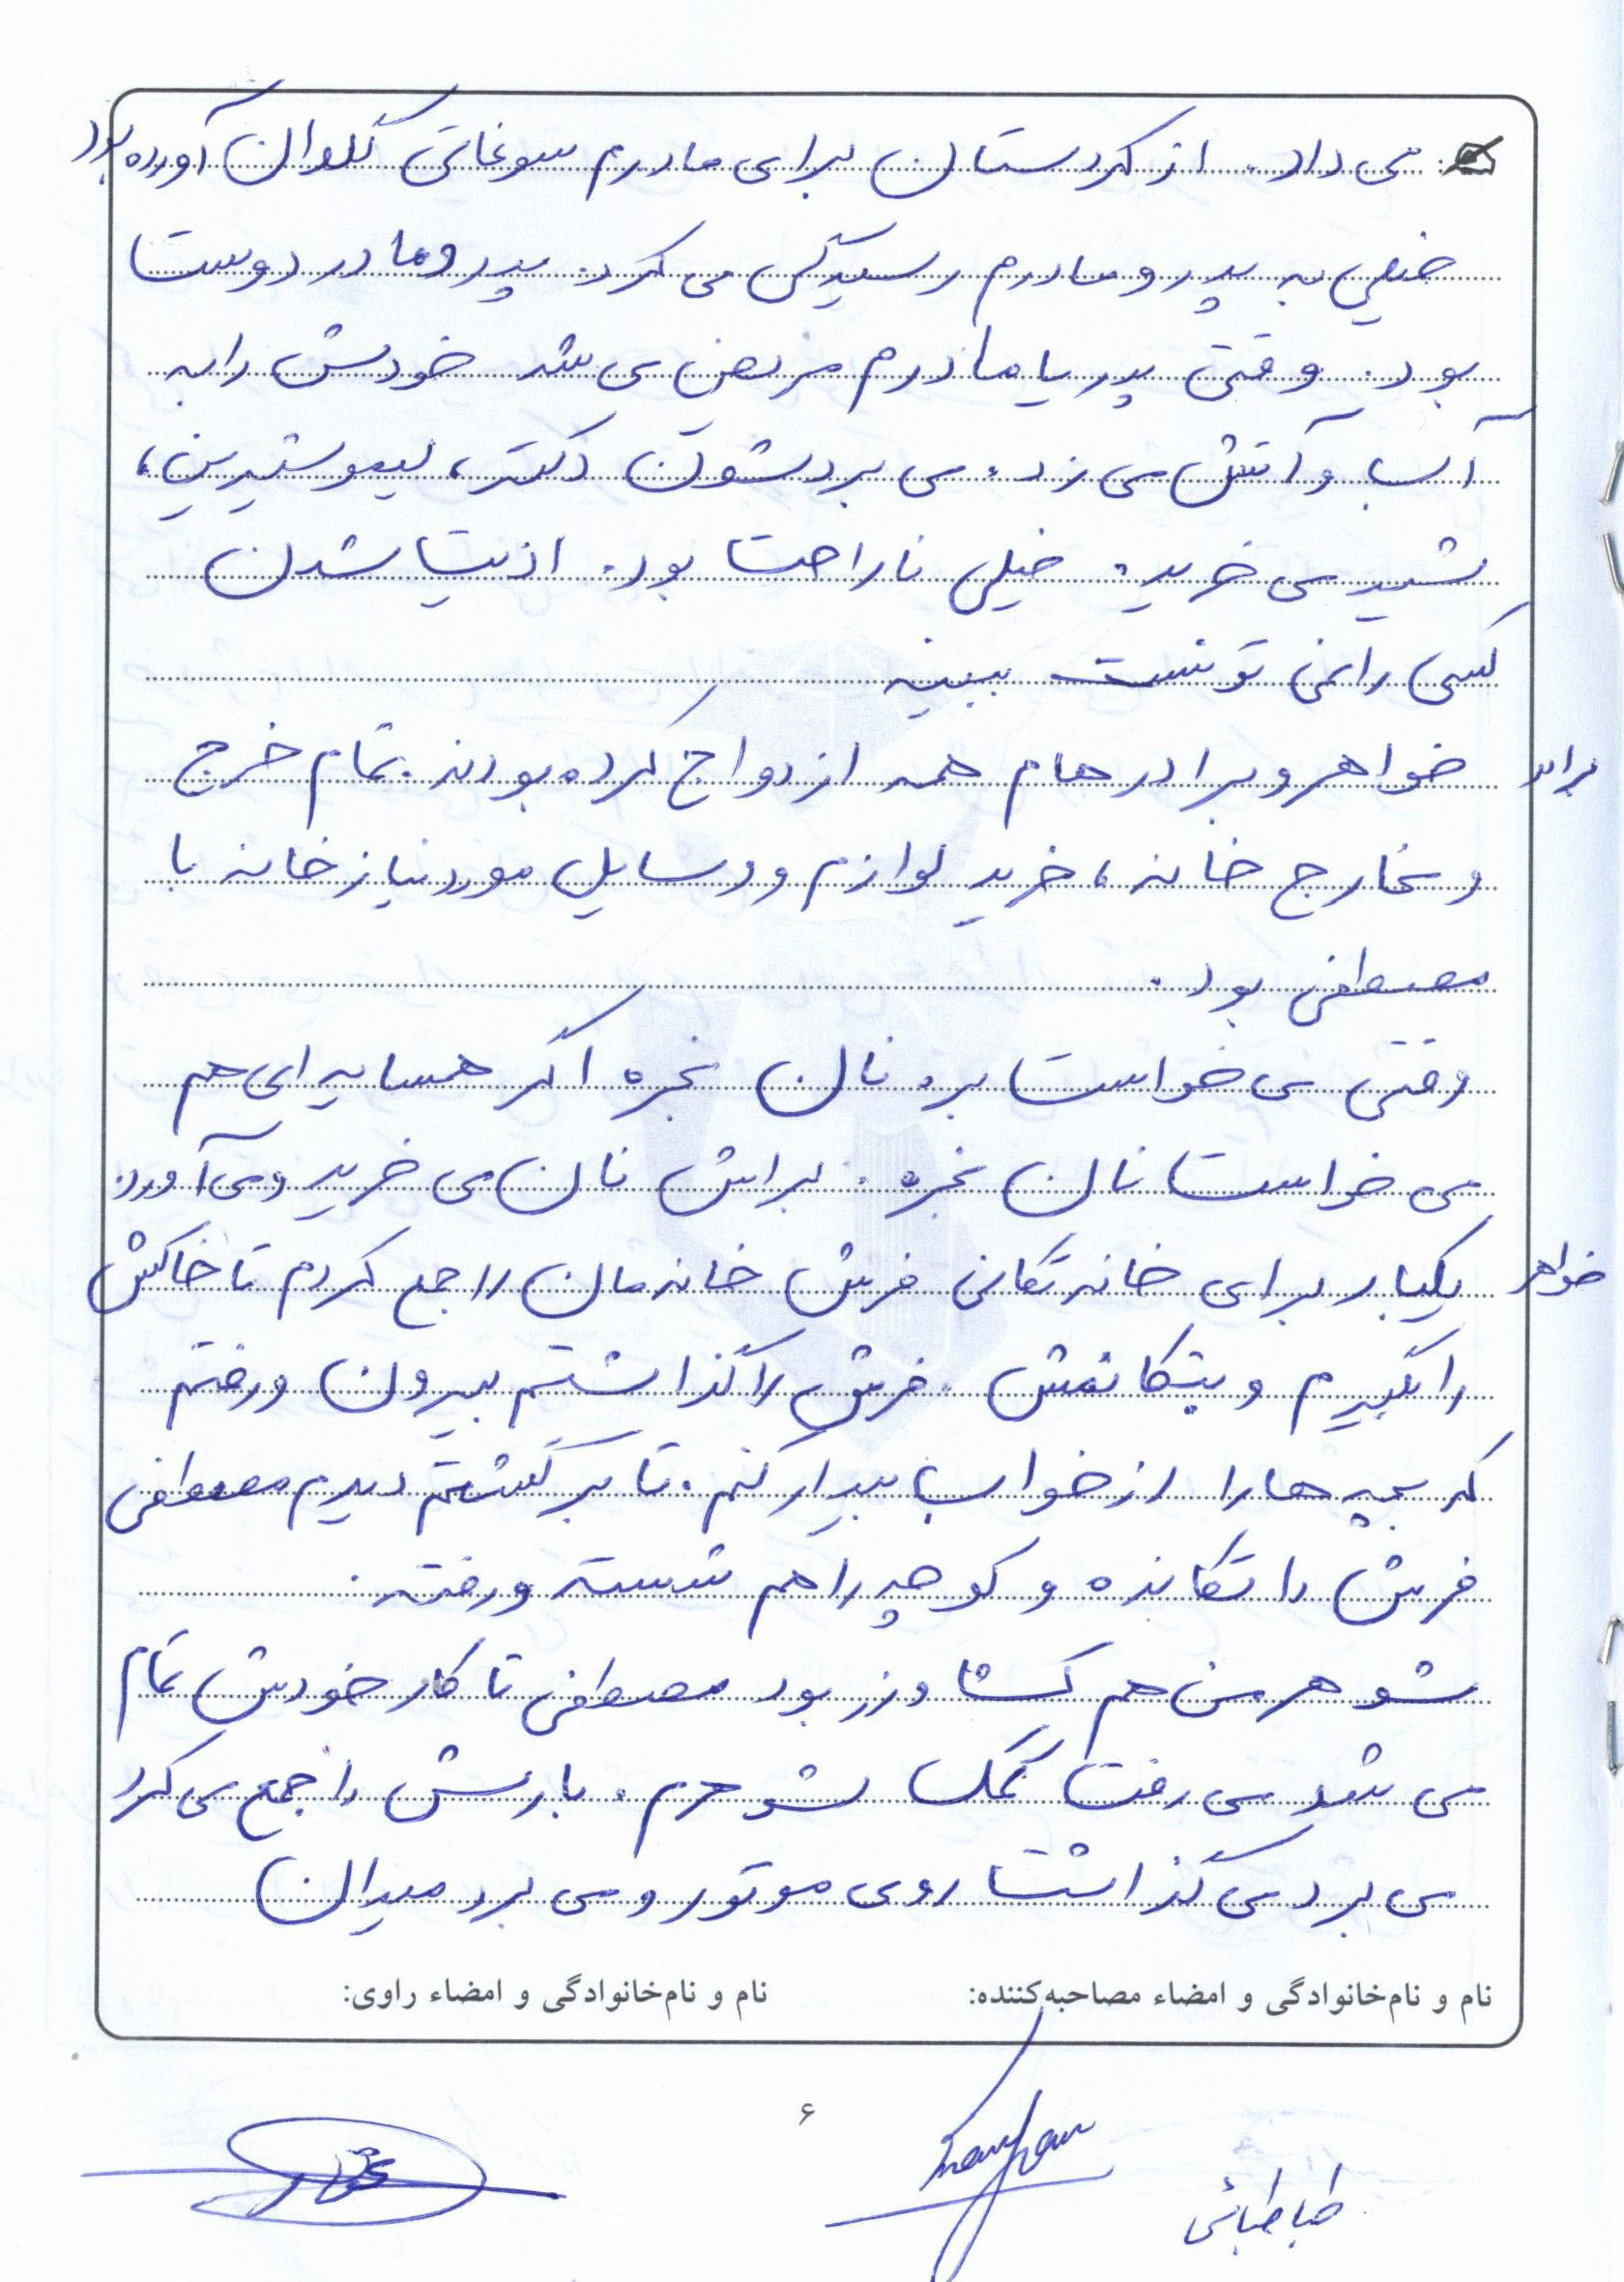 می داد. از کردستان برای مادرم سوغاتی گلدان آورده بود
خیلی به پدر و مادرم رسیدگی می کرد. پدر و مادر دوست
بود. وقتی پدر یا مادرم مریض می شد خودش را به
آب و آتش می زد. می بردشون دکتر، لیمو شیرین،
می خرید. خیلی ناراحت بود. اذیت شدن
کسی را نمی تونست ببینه
برادر
خواهر و برادر هام همه ازدواج کرده بودند. تمام خرج
و مخارج خانه، خرید لوازم و وسایل مورد نیاز خانه با
مصطفی بود.
وقتی می خواست بره نان بخره اگر همسایه ای هم
می خواست نان بخره. براش نان می خرید و می آورد.
خواهر
یکبار برای خانه تکانی فرش خانه مان را جمع کردم تا خاکش
را بگیرم و بتکانمش. فرش را گذاشتم بیرون و رفتم
که بچه ها را از خواب بیدار کنم. تا برگشتم دیدم مصطفی
فرش را تکانده و کوچه را هم شسته و رفته.
شوهر من هم کشاورز بود مصطفی تا کار خودش تمام
می شد می رفت کمک شوهرم. بارش را جمع می کرد
می برد می گذاشت روی موتور و می برد میدان
نام و نام‌خانوادگی و امضاء مصاحبه‌کننده:
نام و نام‌خانوادگی و امضاء راوی:
۶
طباطبائی